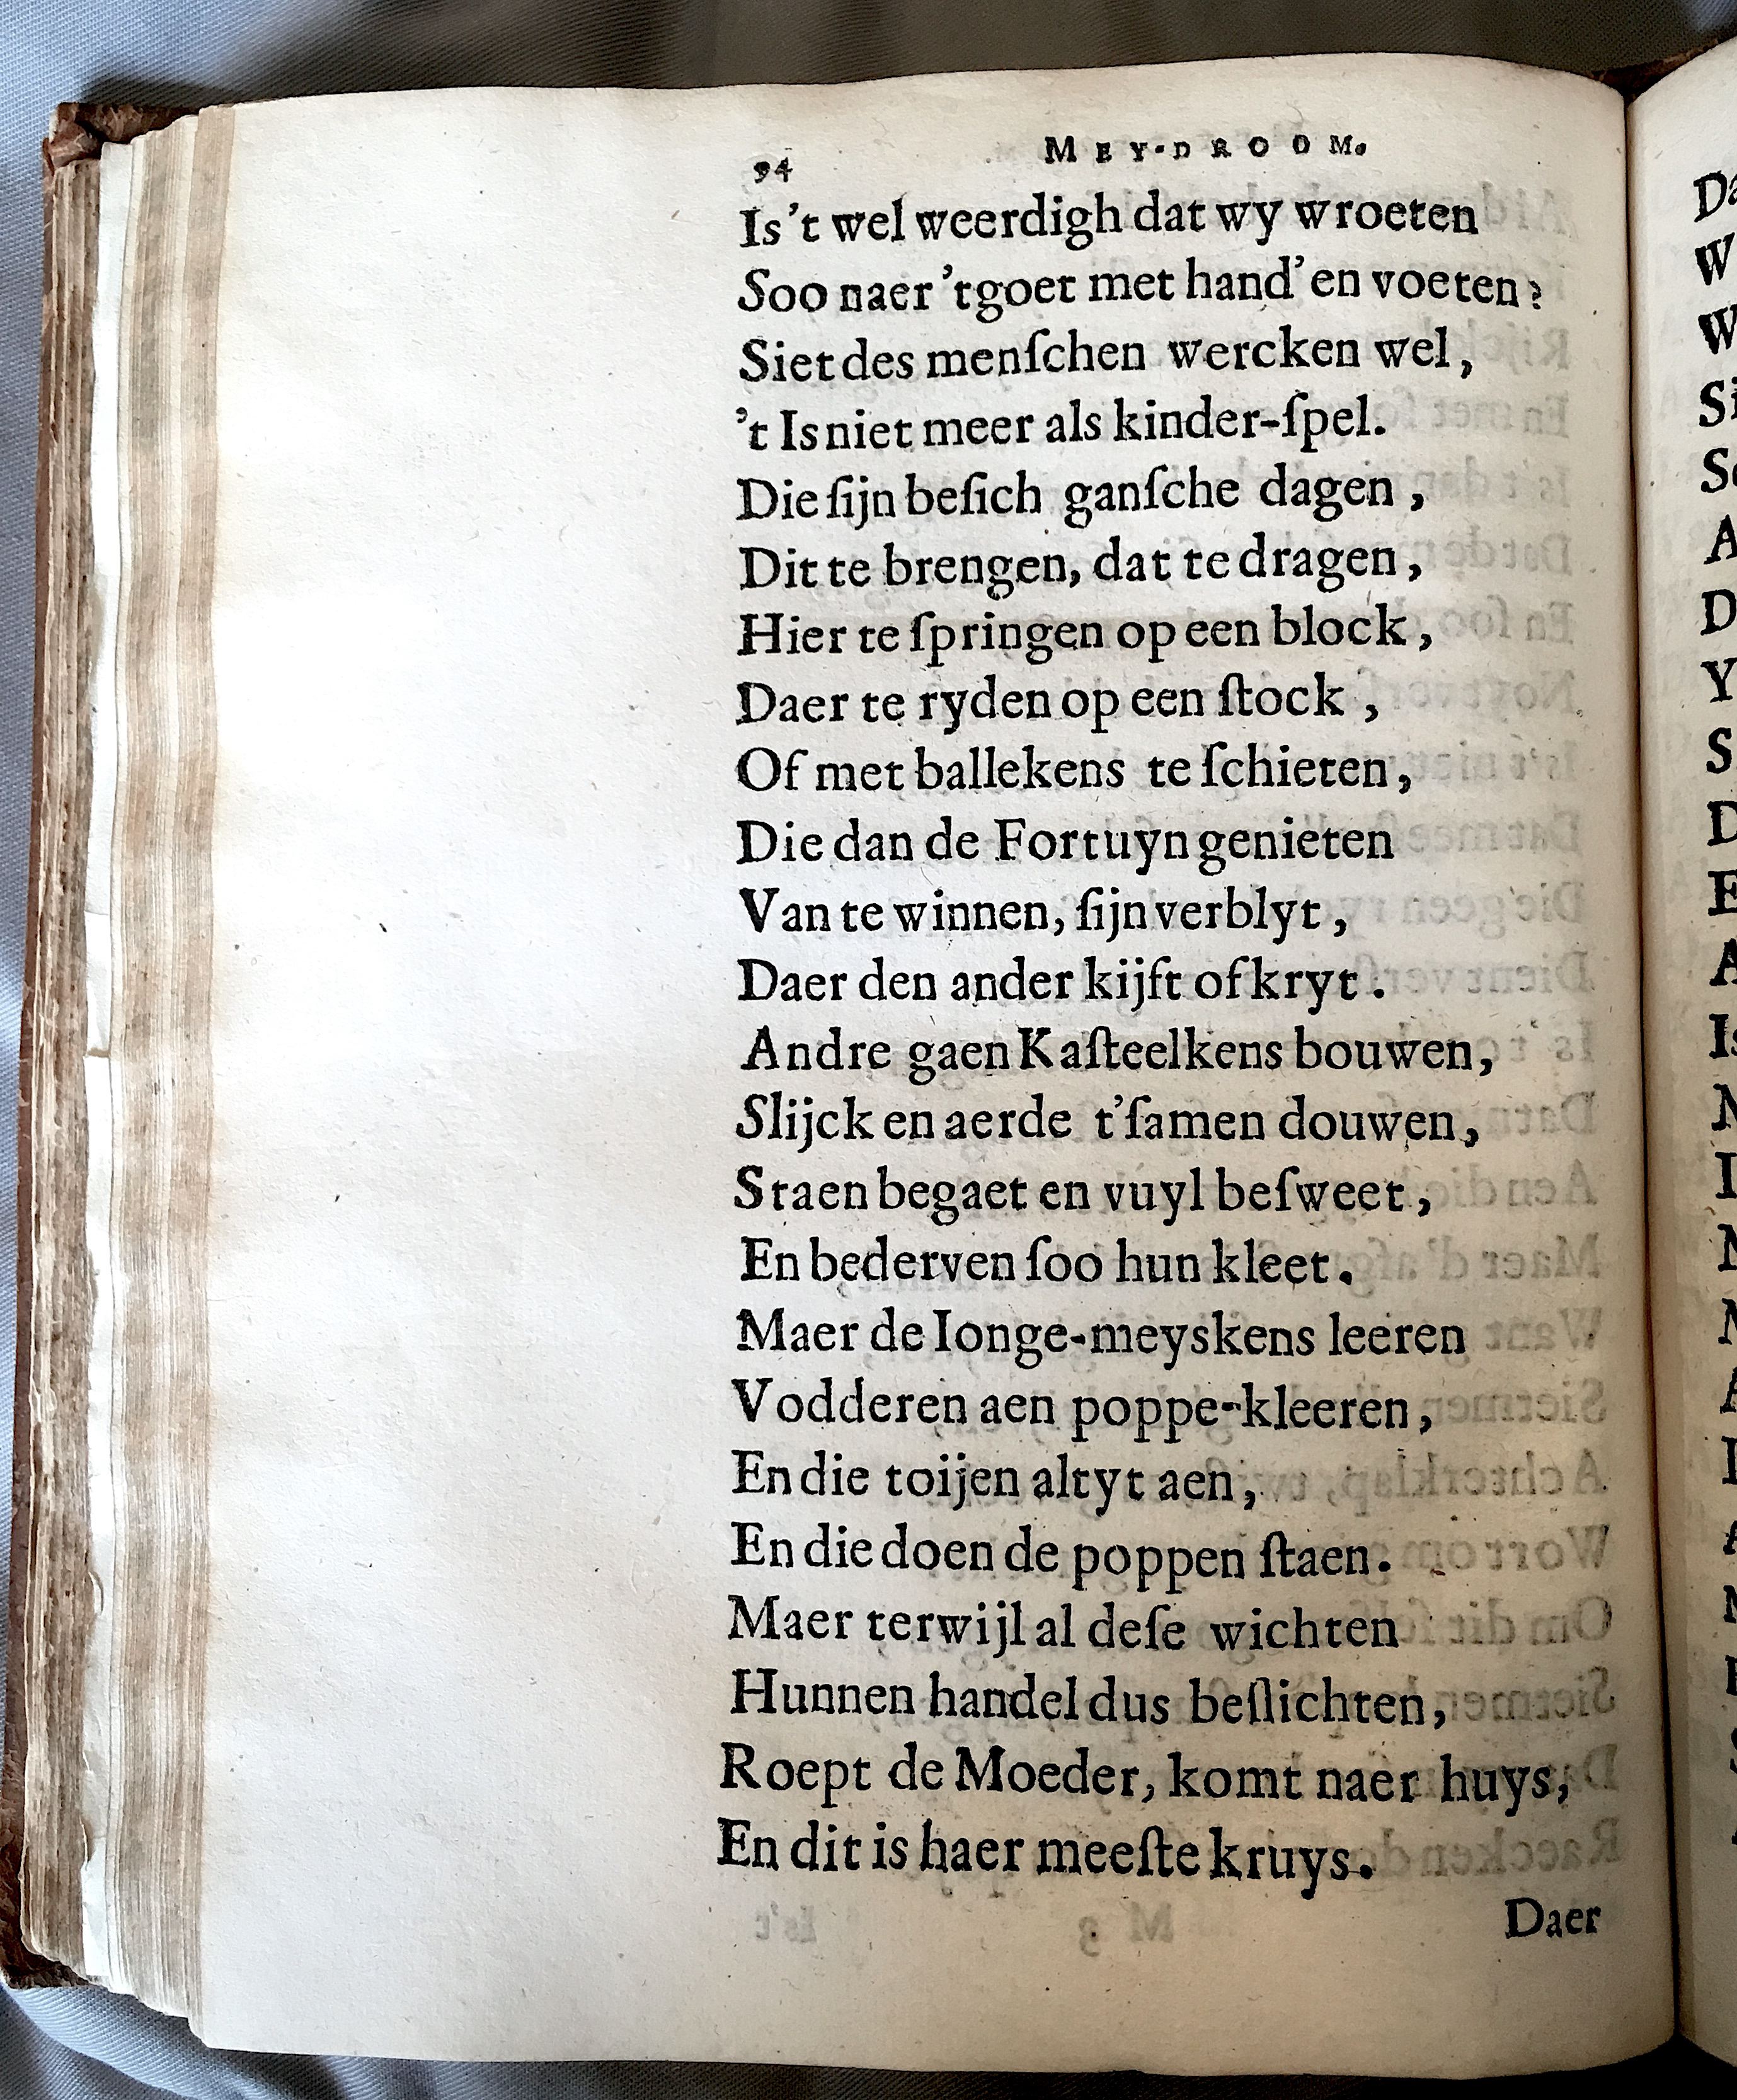 94 MEY-DROOM.
Is't wel weerdigh dat wy wroeten
Soo naer 'tgoet met hand' en voeten?
Siet des menſchen wercken wel,
't Is niet meer als kinder-ſpel.
Die ſijn beſich ganſche dagen,
Dit te brengen, dat te dragen,
Hier te ſpringen op een block,
Daer te ryden op een ſtock,
Of met ballekens te ſchieten,
Die dan de Fortuyn genieten
Van te winnen, ſijn verblyt,
Daer den ander kijft of kryt.
Andre gaen Kaſteelkens bouwen,
Slijck en aerde t'ſamen douwen,
Staen begaet en vuyl beſweet,
En bederven ſoo hun kleet.
Maer de Ionge-meyskens leeren
Vodderen aen poppe-kleeren,
En die toijen altyt aen,
En die doen de poppen ſtaen.
Maer terwijl al deſe wichten
Hunnen handel dus beſlichten,
Roept de Moeder, komt naer huys,
En dit is haer meeſte kruys.
Daer